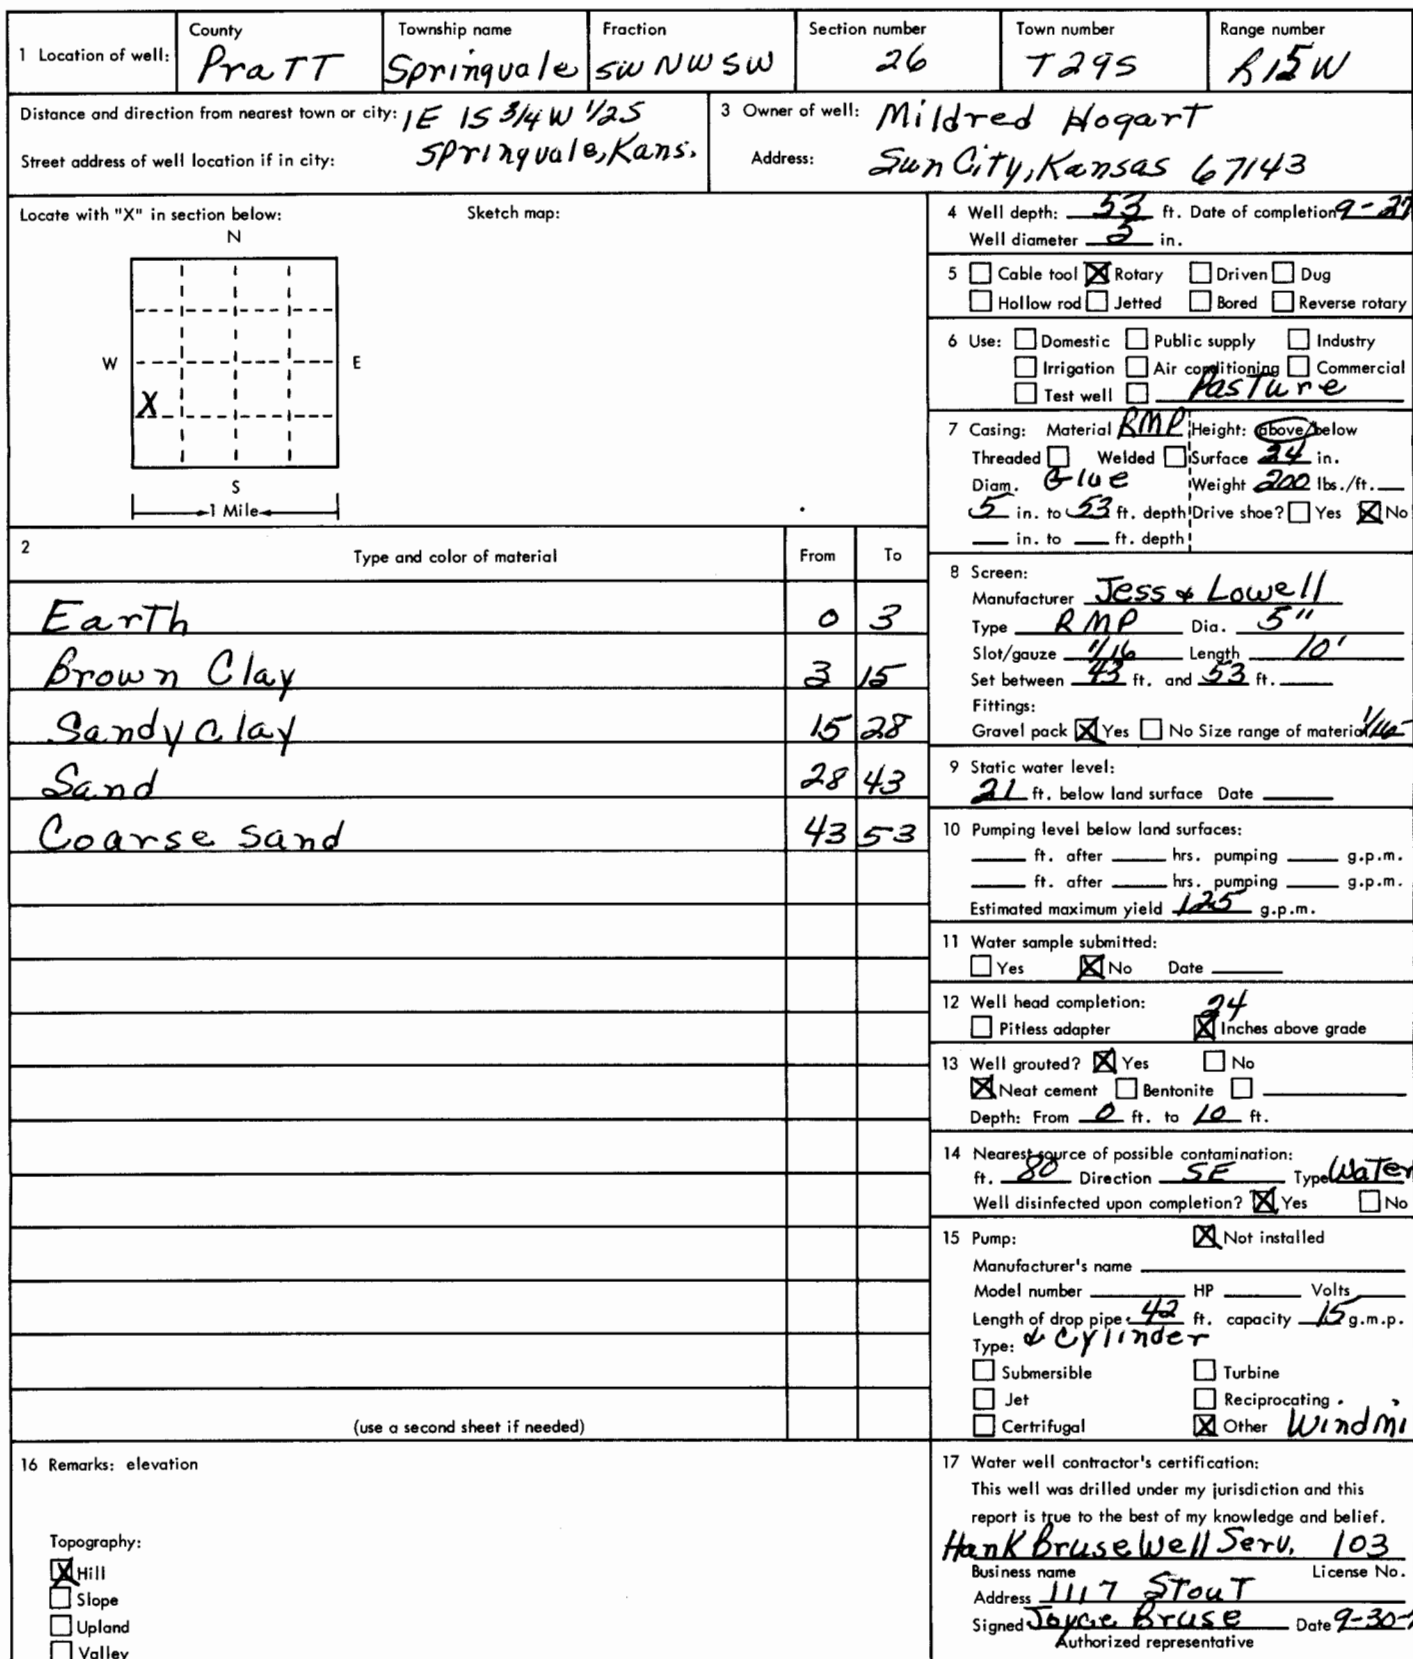 1 Location of well: County Township name Fraction Section number Town number Range number
PraTT Springvale SW NW SW 26 T29S R15W
Distance and direction from nearest town or city: 1E 1S 3/4W 1/2S
Springvale, Kans.
Street address of well location if in city:
3 Owner of well: Mildred Hogart
Address: Sun City, Kansas 67143
Locate with "X" in section below: Sketch map:
N
W E
X
S
1 Mile
2 Type and color of material From To
Earth 0 3
Brown Clay 3 15
Sandy Clay 15 28
Sand 28 43
Coarse sand 43 53
(use a second sheet if needed)
4 Well depth: 53 ft. Date of completion 9-27
Well diameter 5 in.
5 Cable tool X Rotary Driven Dug
Hollow rod Jetted Bored Reverse rotary
6 Use: Domestic Public supply Industry
Irrigation Air conditioning Commercial
Test well PasTure
7 Casing: Material RMP Height: above/below
Threaded Welded Surface 24 in.
Diam. Glue Weight 200 lbs./ft.
5 in. to 53 ft. depth Drive shoe? Yes X No
in. to ft. depth
8 Screen:
Manufacturer Jess & Lowell
Type RMP Dia. 5"
Slot/gauze 1/16 Length 10'
Set between 43 ft. and 53 ft.
Fittings:
Gravel pack X Yes No Size range of material
9 Static water level:
21 ft. below land surface Date
10 Pumping level below land surfaces:
ft. after hrs. pumping g.p.m.
ft. after hrs. pumping g.p.m.
Estimated maximum yield 125 g.p.m.
11 Water sample submitted:
Yes X No Date
12 Well head completion: 24
Pitless adapter X Inches above grade
13 Well grouted? X Yes No
X Neat cement Bentonite
Depth: From 0 ft. to 10 ft.
14 Nearest source of possible contamination:
ft. 80 Direction SE Type WaTer
Well disinfected upon completion? X Yes No
15 Pump: X Not installed
Manufacturer's name
Model number HP Volts
Length of drop pipe 42 ft. capacity 15 g.m.p.
Type: & Cylinder
Submersible Turbine
Jet Reciprocating
Certrifugal X Other Windmi
16 Remarks: elevation
Topography:
X Hill
Slope
Upland
Valley
17 Water well contractor's certification:
This well was drilled under my jurisdiction and this
report is true to the best of my knowledge and belief.
Hank Bruse Well Serv. 103
Business name License No.
Address 1117 STouT
Signed Joyce Bruse Date 9-30-
Authorized representative